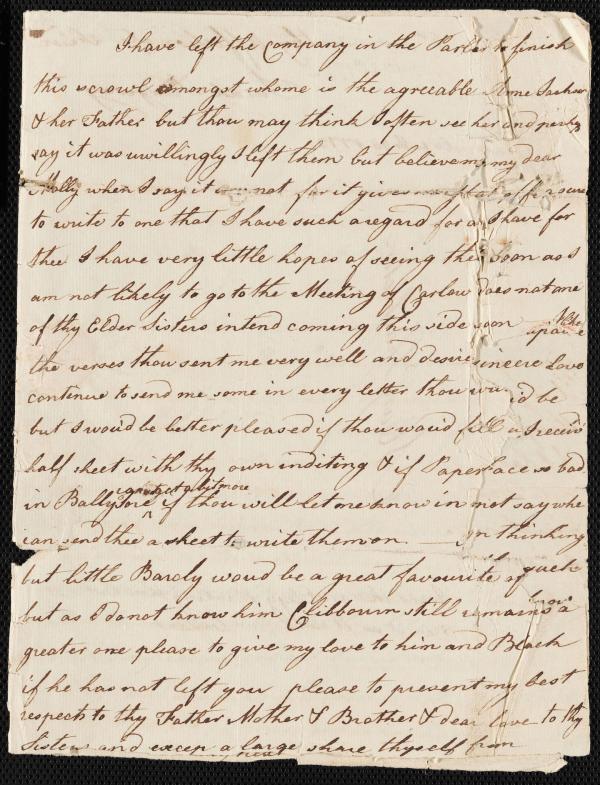 I have left the Company in the Parler to finish
this scrowl amongst whome is the agreeable Anne Jackson
& her Father but thou may think I often see her and perhs
say it was unwillingly I left them but believe me my dear
Molly when I say it not for it gives me
to write to one that I have such a regard for as I have for
thee I have very little hopes of seeing thee soon as I
am not likely to go to the Meeting of Carlow does not one
of thy Elder Sisters intend coming this side soon I like
the verses thou sent me very well and desire sincere Love
continue to send me some in every letter thou
but I woud be better pleased if thou woud fill a I receiv
half sheet with thy own inditing & if Paper so bad
in Ballytore if thou will let me know in not say whe
can send thee a sheet to write them on. I'm thinking
but little Barcly woud be a great favourite of
but as I do not know him Clibbourn still remains a
greater one please to give my love to him and Black
if he has not left you please to present my best
respects to thy Father Mother & Brother & dear love to thy
Sisters and accep a large share thyself from